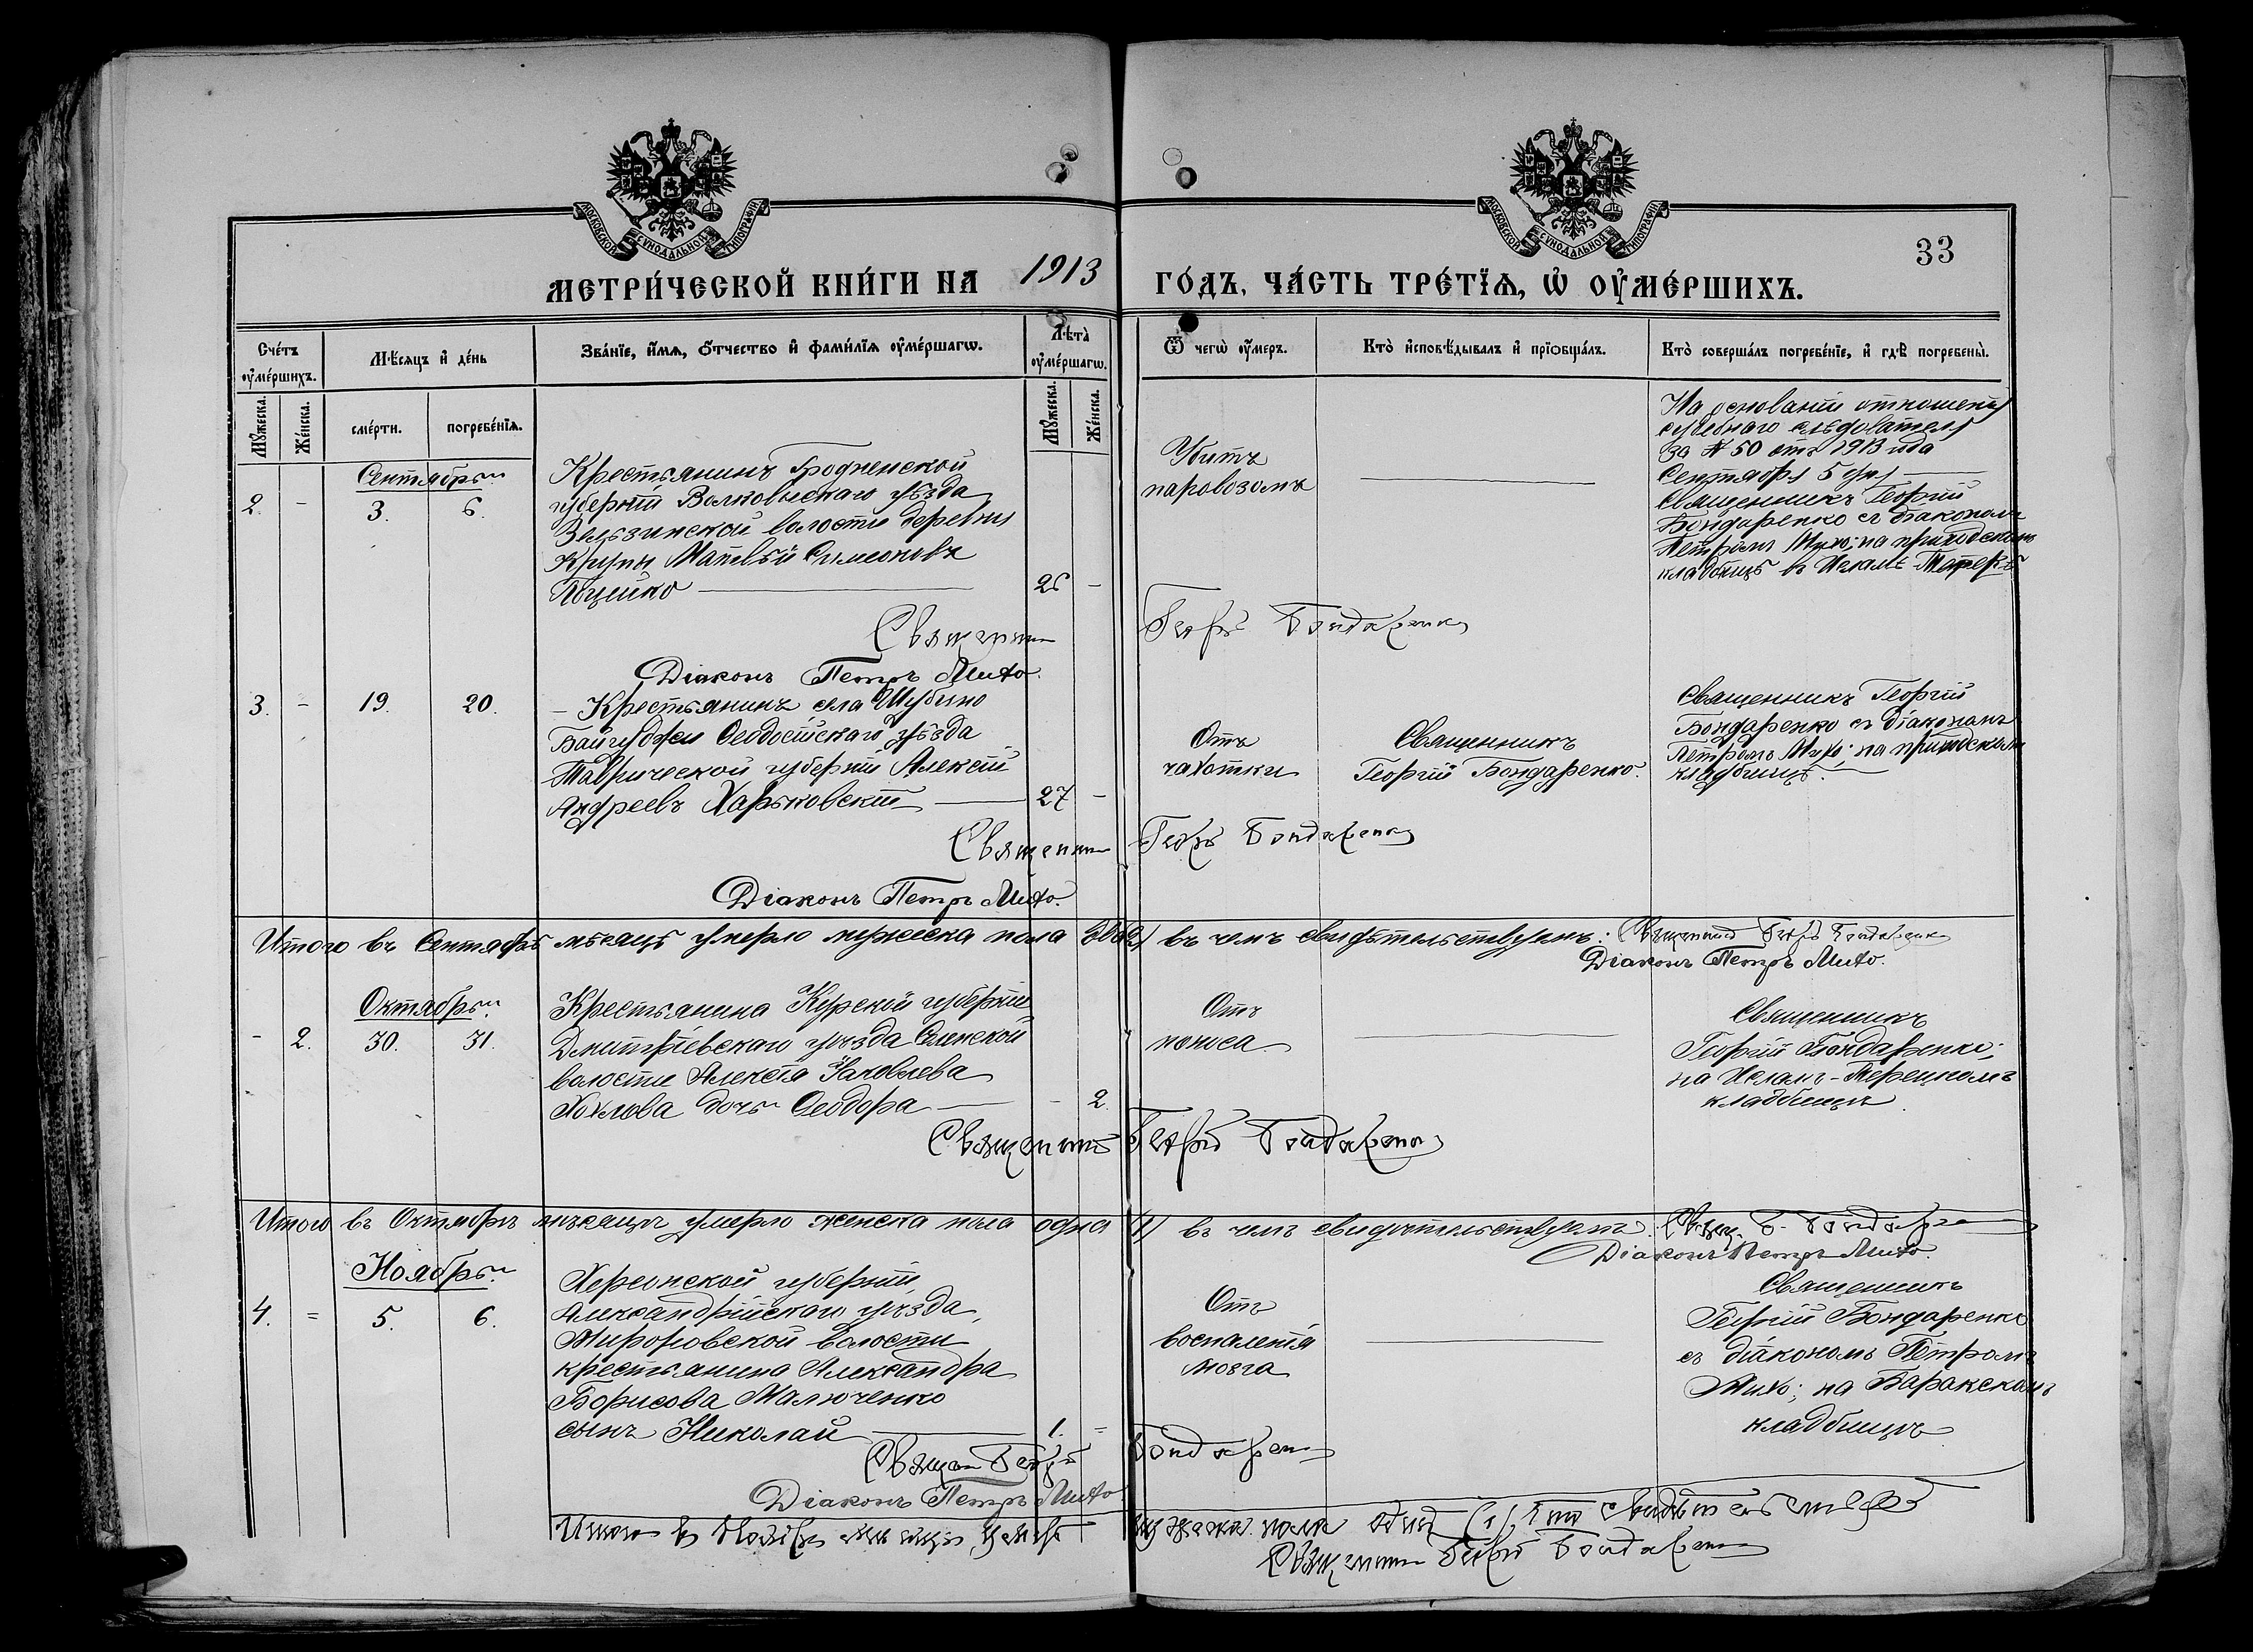 МОСКОВСКОЙ СѴНОДАЛЬНОЙ ТИПОГРАФІИ
МОСКОВСКОЙ СѴНОДАЛЬНОЙ ТИПОГРАФІИ
33
МЕТРИ́ЧЕСКОЙ КНИ́ГИ НА 1913 ГО́ДЪ, ЧА́СТЬ ТРЕ́ТЇѦ, Ѡ҆ ОУ҆МЕ́РШИХЪ.
Сче́тъ оу҆ме́ршихъ.
Мѣ́сяцъ и҆ де́нь
Зва́нїе, и҆́мѧ, ѻ҆́тчество и҆ фами́лїѧ оу҆ме́ршагѡ.
Лѣ́та оу҆ме́ршагѡ.
Ѿ чегѡ̀ оу҆́меръ.
Кто̀ и҆сповѣ́дывалъ и҆ прїѻбща́лъ.
Кто̀ соверша́лъ погребе́нїе, и҆ гдѣ̀ погребены̀.
Мꙋ́жеска.
Же́нска.
сме́рти.
погребе́нїѧ.
Мꙋ́жеска.
Же́нска.
Сентябрь
2. - 3. 6.
Крестьянинъ Гродненской
губерніи Волковыскаго уѣзда
волости деревни
Крупы Матвѣй Симеоновъ
26 -
Убитъ
паровозомъ
На основаніи отношенія
судебнаго слѣдователя
за № 50 отъ 1913 года
Сентября 5 дня
Священникъ Георгій
Бондаренко съ діакономъ
Петромъ Михо; на приходскомъ
кладбищѣ в Исламъ-Терекѣ
Священникъ Георгій Бондаренко
Діаконъ Петръ Михо.
3. - 19. 20.
- Крестьянинъ села Шубино
Байгуджи Ѳеодосійскаго уѣзда
Таврической губерніи Алексій
Андреевъ Харьковскій 27 -
Отъ
чахотки
Священникъ
Георгій Бондаренко.
Священникъ Георгій
Бондаренко съ діакономъ
Петромъ Михо; на приходскомъ
кладбищѣ.
Священникъ Георгій Бондаренко
Діаконъ Петръ Михо.
Итого въ Сентябрѣ мѣсяцѣ умерло мужеска пола два (2) въ чемъ свидѣтельствуемъ: Священникъ Георгій Бондаренко
Діаконъ Петръ Михо.
Октябрь.
- 2. 30. 31.
Крестьянина Курской губерніи
Дмитріевскаго уѣзда
волости Алексѣя Яковлева
Хохлова дочь Ѳеодора - 2.
Отъ
поноса.
Священникъ
Георгій Бондаренко;
на Исламъ-Терецкомъ
кладбищѣ
Священникъ Георгій Бондаренко
Итого въ Октябрѣ мѣсяцѣ умерло женска пола одна (1) въ чемъ свидѣтельствуемъ: Свящ. Г. Бондаренко
Діаконъ Петръ Михо.
Ноябрь.
4. = 5. 6.
Херсонской губерніи,
Александрійскаго уѣзда,
волости
крестьянина Александра
Борисова Малюченко
сынъ Николай 1. =
Отъ
воспаленія
мозга
Священникъ
Георгій Бондаренко
съ діакономъ Петромъ
Михо; на Баракскомъ
кладбищѣ
Священ Георгій Бондаренко
Діаконъ Петръ Михо
Итого въ Ноябрѣ мѣсяцѣ умеръ мужеска пола одинъ (1),
Священникъ Георгій Бондаренко